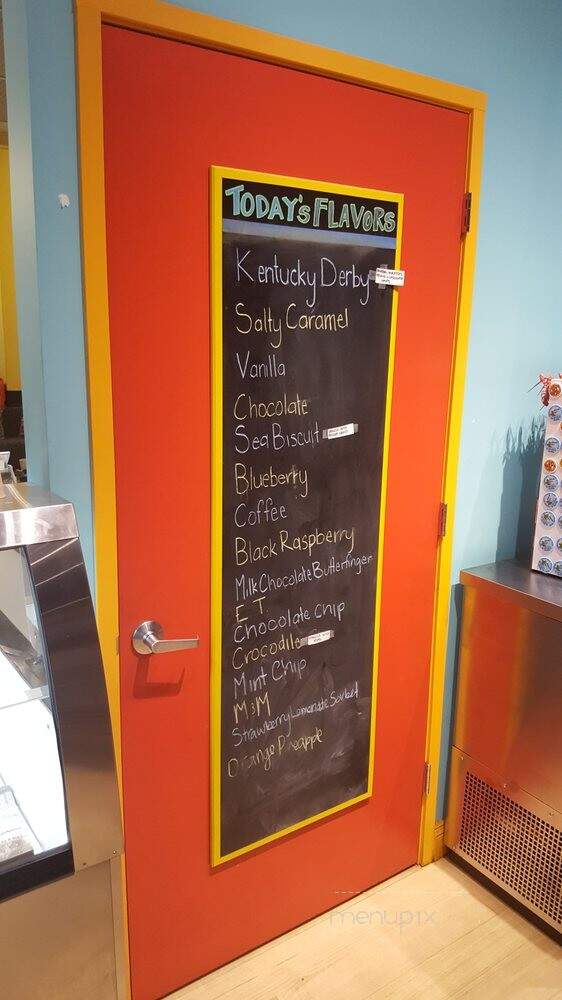 TODAY'S FLAVORS
Kentucky Derby
Salty Caramel
Vanilla
Chocolate
Sea Biscuit
Blueberry
Coffee
Black Raspberry
Milk Chocolate Butterfinger
E T
Chocolate chip
Crocodile
Mint Chip
M&M
Strawberry Lemonade Sorbet
Orange Pineapple
menupix